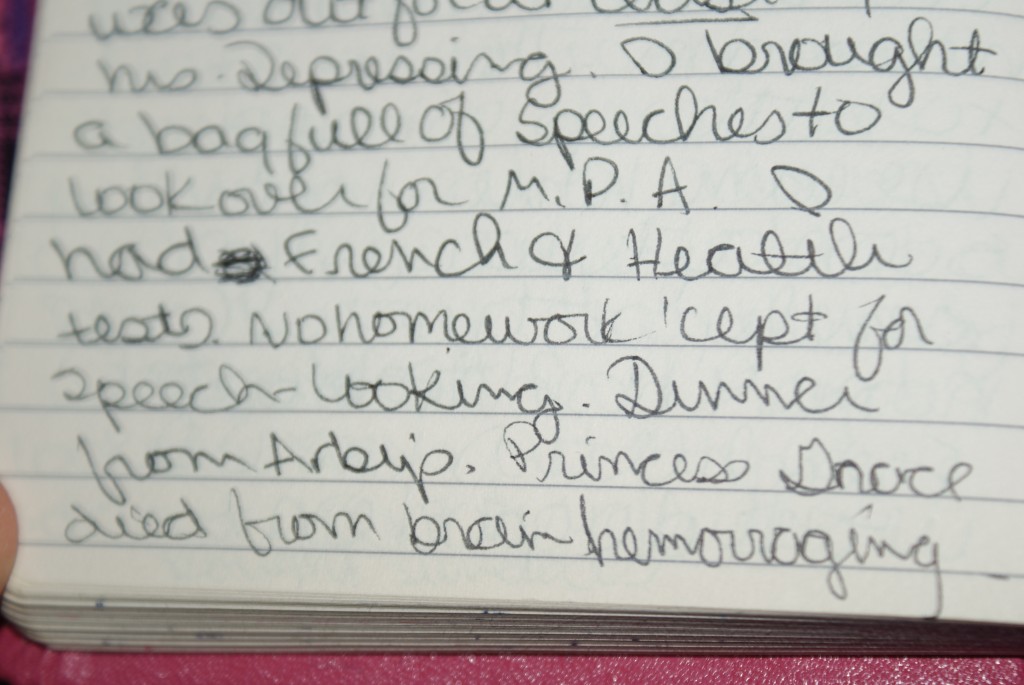 his. Depressing. I brought
a bag full of speeches to
look over for M.P.A. I
had French & Health
tests. No homework 'cept for
speech-looking. Dinner
from Arby's. Princess Grace
died from brain hemorraging